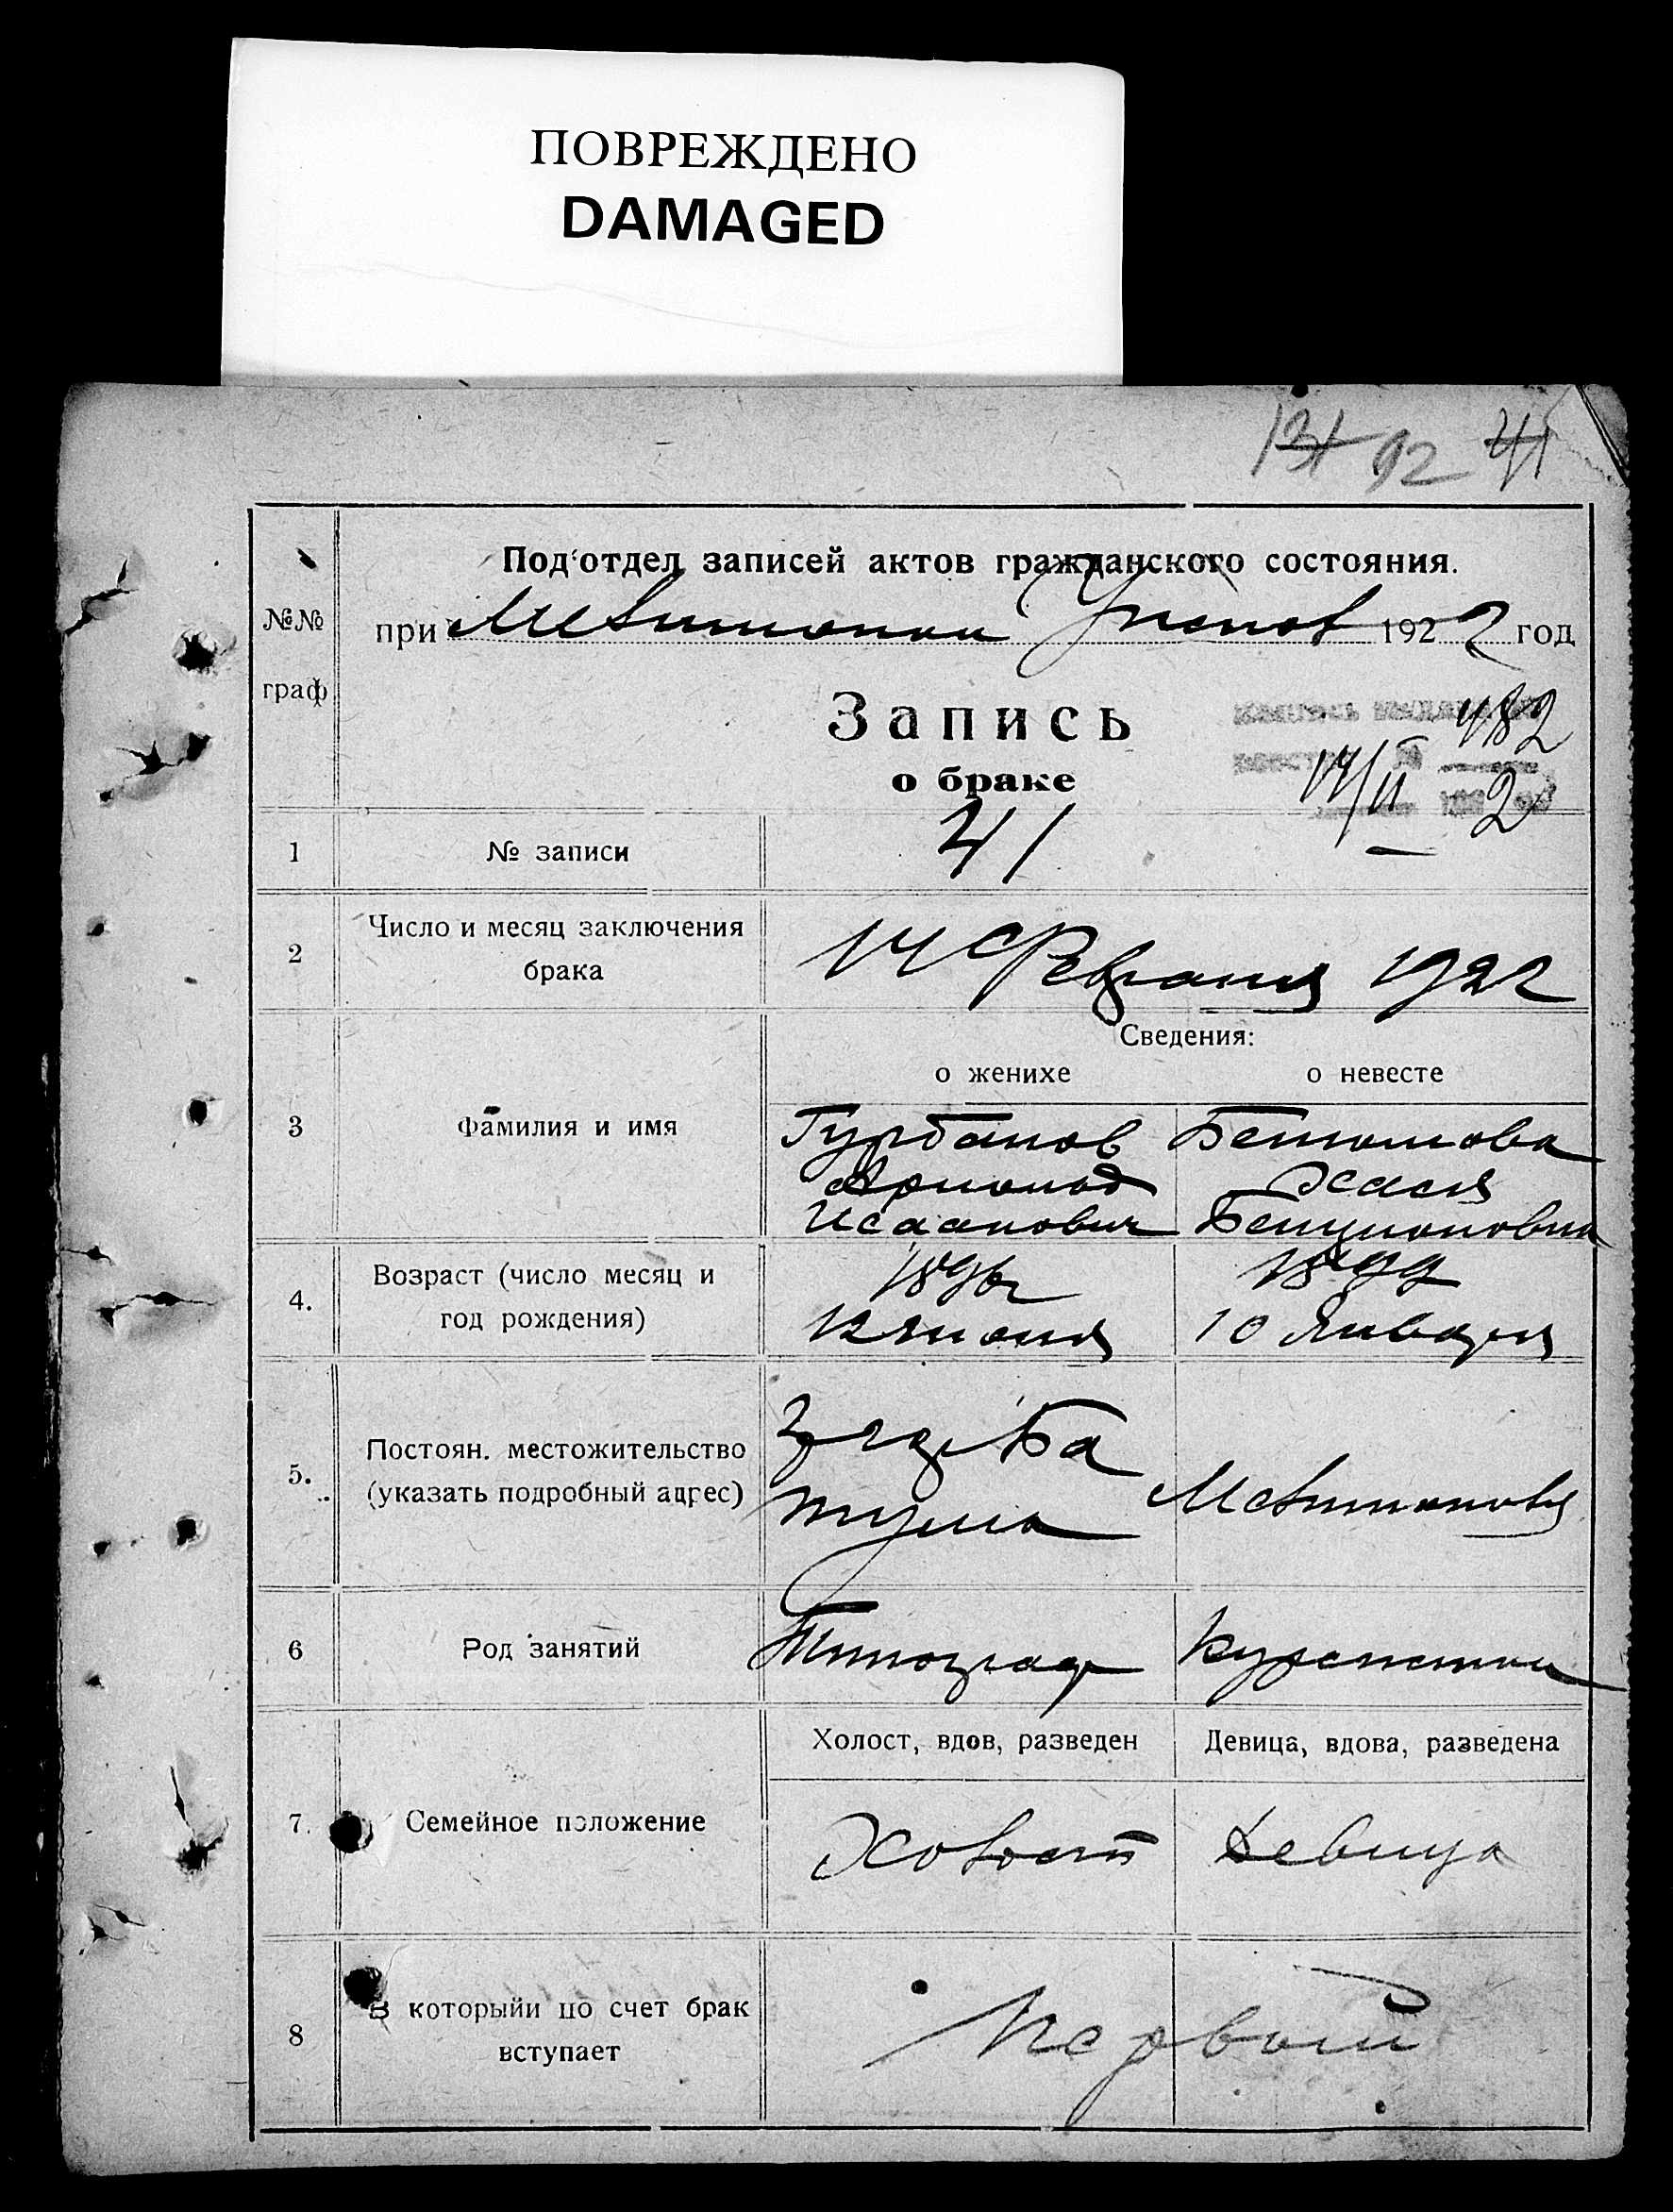 ПОВРЕЖДЕНО
DAMAGED
131 92 41
Под‘отдел записей актов гражданского состояния.
№№
граф.
при 1922 год
Запись
о браке
482
14/II 2
1 № записи 41
2 Число и месяц заключения
брака
14 Февраля 1922
Сведения:
о женихе о невесте
3 Фамилия и имя
Гурбанов
Исаакович
4. Возраст (число месяц и
год рождения)
1896 г 1899
10 Января
5. Постоян. местожительство
(указать подробный адрес)
6 Род занятий
Типограф Курсистка
7. Семейное положение
Холост, вдов, разведен Девица, вдова, разведена
Холост Девица
8 В которыйи по счет брак
вступает
Первый